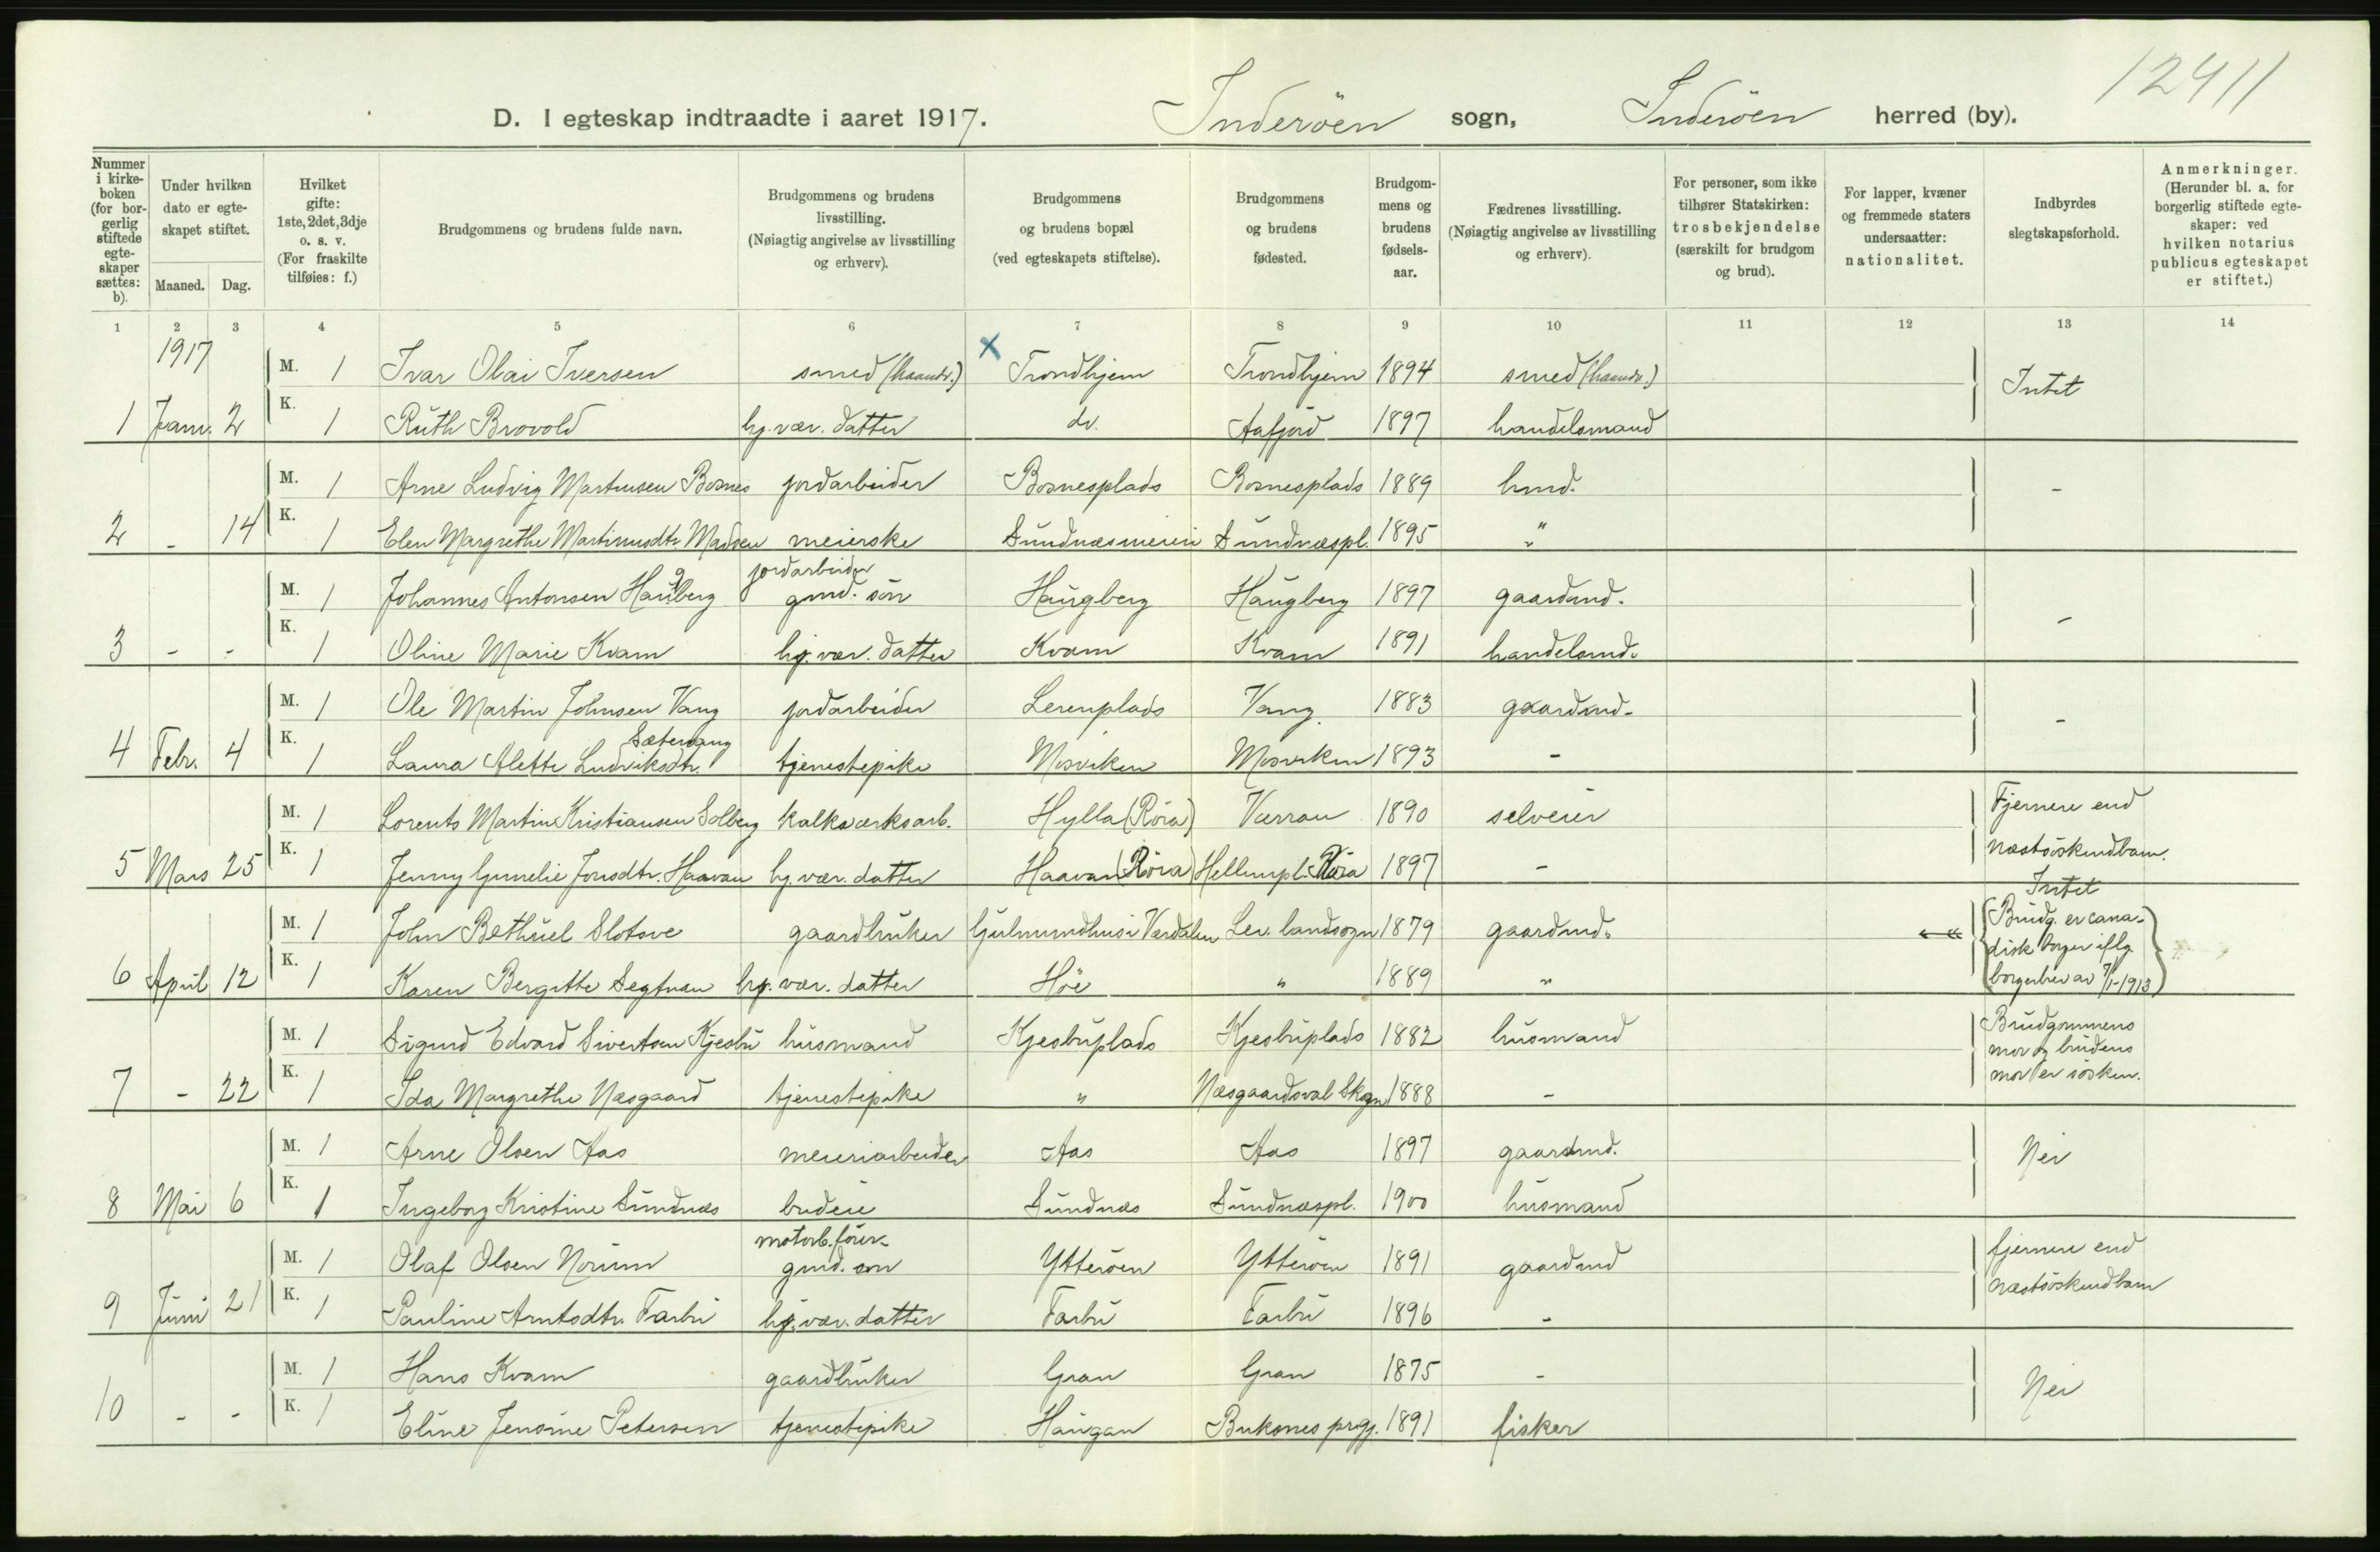 12411
D. I egteskap indtraadte i aaret 1917. Inderöen sogn, Inderöen herred (by).
Nummer i kirke-boken (for bor-gerlig stiftede egte-skaper sættes: b). Under hvilken dato er egte-skapet stiftet. Maaned. Dag. Hvilket gifte: 1ste, 2det, 3dje o. s. v. (For fraskilte tilføies: f.) Brudgommens og brudens fulde navn. Brudgommens og brudens livsstilling. (Nøiagtig angivelse av livsstilling og erhverv). Brudgommens og brudens bopæl (ved egteskapets stiftelse). Brudgommens og brudens fødested. Brudgom-mens og brudens fødsels-aar. Fædrenes livsstilling. (Nøiagtig angivelse av livsstilling og erhverv). For personer, som ikke tilhører Statskirken: trosbekjendelse (særskilt for brudgom og brud). For lapper, kvæner og fremmede staters undersaatter: nationalitet. Indbyrdes slegtskapsforhold. Anmerkninger. (Herunder bl. a. for borgerlig stiftede egte-skaper: ved hvilken notarius publicus egteskapet er stiftet.)
1 2 3 4 5 6 7 8 9 10 11 12 13 14
1917 x
M. 1 Ivar Olai Iversen smed (haandv.) Trondhjem Trondhjem 1894 smed (haandv.) Intet
1 Janr. 2 K. 1 Ruth Brovold hj. vær. datter do. Aafjord 1897 handelsmand
M. 1 Arne Ludvig Martinsen Bosnes jordarbeider Bosnesplads Bosnesplads 1889 hmd. -
2 - 14 K. 1 Elen Margrethe Martinusdtr. Madsen meierske Sundnæsmeieri Sundnæspl. 1895 "
jordarbeider
M. 1 Johannes Antonsen Haugberg gmd. sön Haugberg Haugberg 1897 gaardmd. -
3 - - K. 1 Oline Marie Kvam hj. vær. datter Kvam Kvam 1891 handelsmd.
M. 1 Ole Martin Johnsen Vang jordarbeider Lerenplads Vang 1883 gaardmd. -
Sætervang
4 Febr. 4 K. 1 Laura Alette Ludviksdtr. tjenestepike Mosviken Mosviken 1893 -
M. 1 Lorents Martin Kristiansen Solberg kalkværksarb. Hylla (Röra) Værran 1890 selveier Fjernere end
5 Mars 25 K. 1 Jenny Gunelie Jonsdtr. Haavan hj. vær. datter Haavan (Röra) Hellempl. Röra 1897 - næstsöskendbarn.
Intet
M. 1 John Bethuel Slotsve gaardbruker Gulmundhus i Verdalen Lev. landsogn 1879 gaardmd. (Brudg. er cana-
disk borger iflg.
6 April 12 K. 1 Karen Bergitte Segtnan hj. vær. datter Höe " 1889 " borgerbrev av 7/1-1913)
M. 1 Sigurd Edvard Sivertsen Kjesbu husmand Kjesbuplads Kjesbuplads 1882 husmand Brudgommens
mor og brudens
7 - 22 K. 1 Ida Margrethe Næsgaard tjenestepike " Næsgaardsval Skogn 1888 - mor er sösken.
M. 1 Arne Olsen Aas meieriarbeider Aas Aas 1897 gaardmd. Nei
8 Mai 6 K. 1 Ingeborg Kristine Sundnæs budeie Sundnæs Sundnæspl. 1900 husmand
motorb. förer
M. 1 Olaf Olsen Norum gmd. sön Ytteröen Ytteröen 1891 gaardmd fjernere end
9 Juni 21 K. 1 Pauline Arntsdtr. Farbu hj. vær. datter Farbu Farbu 1896 - næstsöskendbarn
M. 1 Hans Kvam gaardbruker Gran Gran 1875 - Nei
10 - - K. 1 Eline Jensine Petersen tjenestepike Haugan Buksnes prgj. 1891 fisker